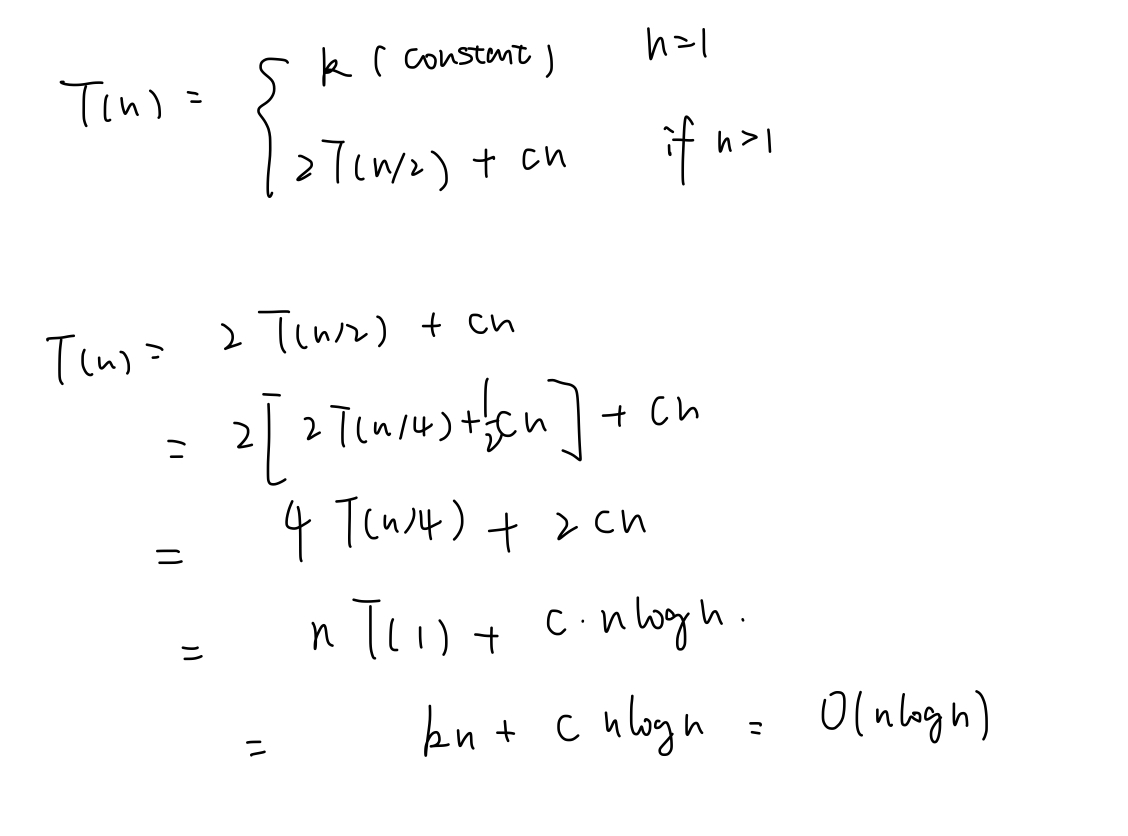 T(n) = { k (constant) n=1
2T(n/2) + cn if n>1
T(n) = 2T(n/2) + cn
= 2[2T(n/4) + 1/2 cn] + cn
= 4T(n/4) + 2cn
= nT(1) + c·nlogn.
= kn + c nlogn = O(nlogn)